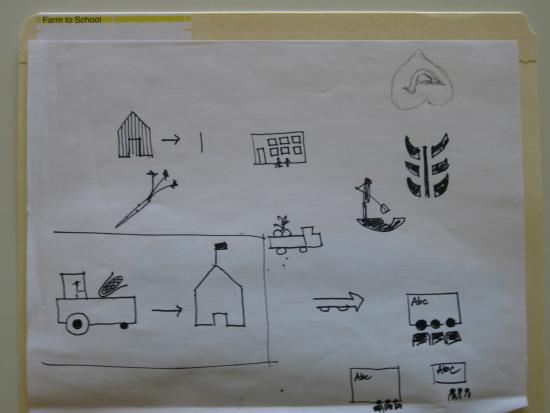 Farm to School
Abc
Abc
Abc